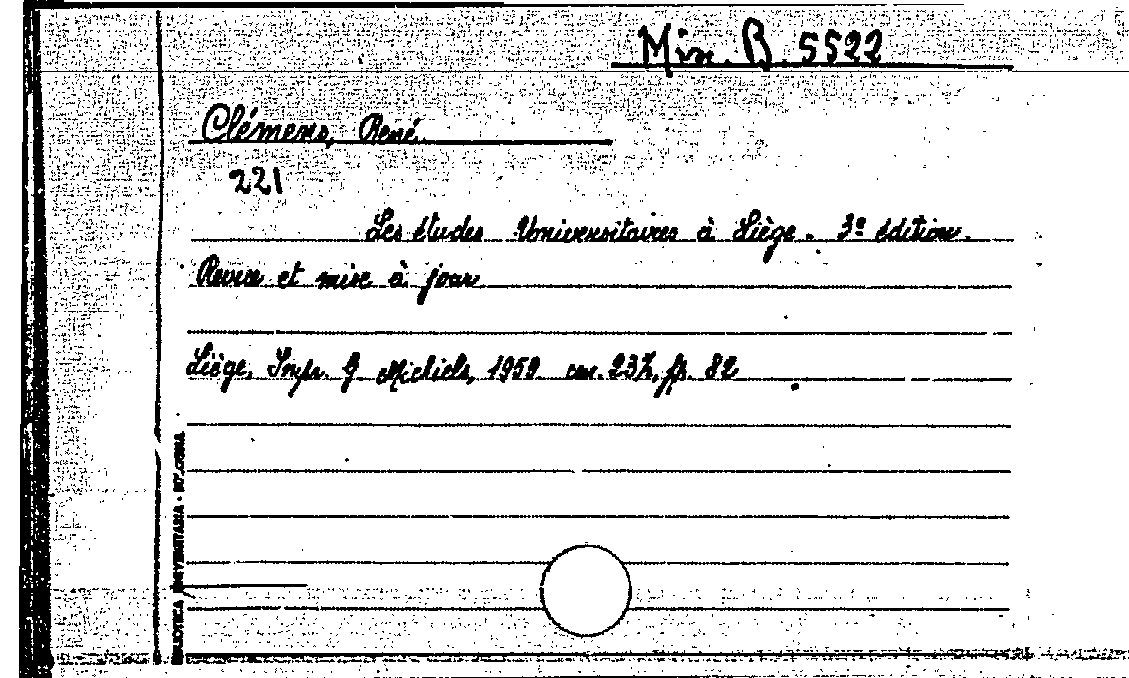 Min. B. 5522
Clémens, René
221
Les études Universitaires à Liège. 3e édition.
Revue et mise à jour
Liège, Impr. G. Michiels, 1959 cm. 23½, pp. 82
BIBLIOTECA UNIVERSITARIA - BOLOGNA